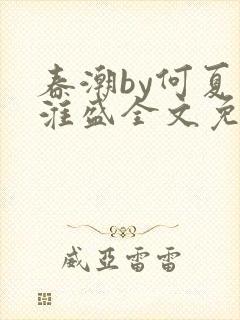 春潮by何夏
淮盛全文免
威亚雷雷